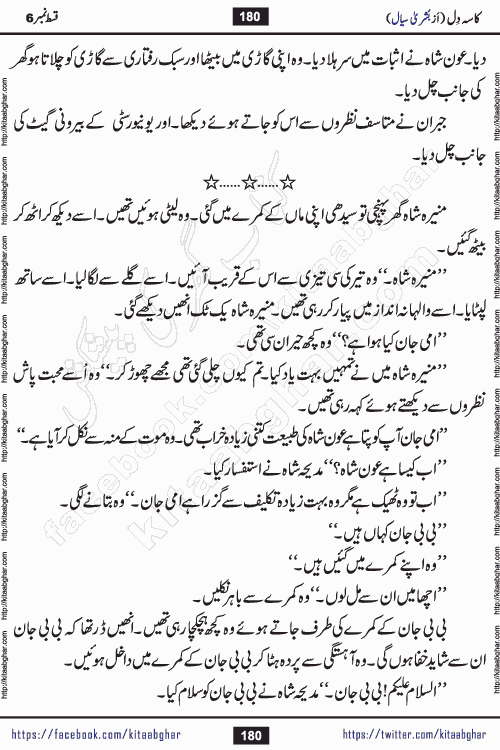 کاسہ دِل (از بشریٰ سیال) 180 قسط نمبر 6
دیا۔ عون شاہ نے اثبات میں سر ہلا دیا۔ وہ اپنی گاڑی میں بیٹھا اور سبک رفتاری سے گاڑی کو چلاتا ہوا گھر
کی جانب چل دیا۔
جبران نے متاسف نظروں سے اس کو جاتے ہوئے دیکھا۔ اور یونیورسٹی کے بیرونی گیٹ کی
جانب چل دیا۔
☆......☆......☆
منیرہ شاہ گھر پہنچی تو سیدھی اپنی ماں کے کمرے میں گئی۔ وہ لیٹی ہوئیں تھیں۔ اسے دیکھ کر اٹھ کر
بیٹھ گئیں۔
”منیرہ شاہ۔“ وہ تیر کی سی تیزی سے اس کے قریب آئیں۔ اسے گلے سے لگا لیا۔ اسے ساتھ
لپٹایا۔ اسے والہانہ انداز میں پیار کر رہی تھیں۔ منیرہ شاہ یک ٹک انھیں دیکھے گئی۔
”امی جان کیا ہوا ہے؟“ وہ کچھ حیران سی تھی۔
”منیرہ شاہ میں نے تمہیں بہت یاد کیا۔ تم کیوں چلی گئی تھی مجھے چھوڑ کر۔“ وہ اُسے محبت پاش
نظروں سے دیکھتے ہوئے کہہ رہی تھیں۔
”امی جان آپ کو پتا ہے عون شاہ کی طبیعت کتنی زیادہ خراب تھی۔ وہ موت کے منہ سے نکل کر آیا ہے۔“
”اب کیسا ہے عون شاہ؟“ مدیحہ شاہ نے استفسار کیا۔
”اب تو وہ ٹھیک ہے مگر وہ بہت زیادہ تکلیف سے گزرا ہے امی جان۔“ وہ بتانے لگی۔
”بی بی جان کہاں ہیں۔“
”وہ اپنے کمرے میں گئیں ہیں۔“
”اچھا میں ان سے مل لوں۔“ وہ کمرے سے باہر نکلیں۔
بی بی جان کے کمرے کی طرف جاتے ہوئے وہ کچھ ہچکچا رہی تھیں۔ انھیں ڈر تھا کہ بی بی جان
ان سے شاید خفا ہوں گی۔ وہ آہستگی سے پردہ ہٹا کر بی بی جان کے کمرے میں داخل ہوئیں۔
”السلام علیکم! بی بی جان۔“ مدیحہ شاہ نے بی بی جان کو سلام کیا۔
https://facebook.com/kitaabghar 180 https://twitter.com/kitaabghar
http://kitaabghar.com http://kitaabghar.com http://kitaabghar.com http://kitaabghar.com http://kitaabghar.com http://kitaabghar.com
facebook.com/kitaabghar
kitaabghar.com